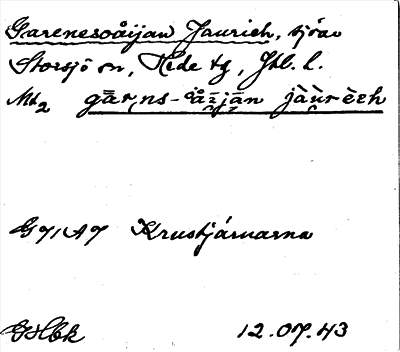 Garenesoåijan Jaurieh, sjöar
Storsjö sn, Hede tg, Jtl. l.
Mt2 gārns-åi̯jān jàu̯rèeh
G71A7 Krustjárvarna
12.07.43